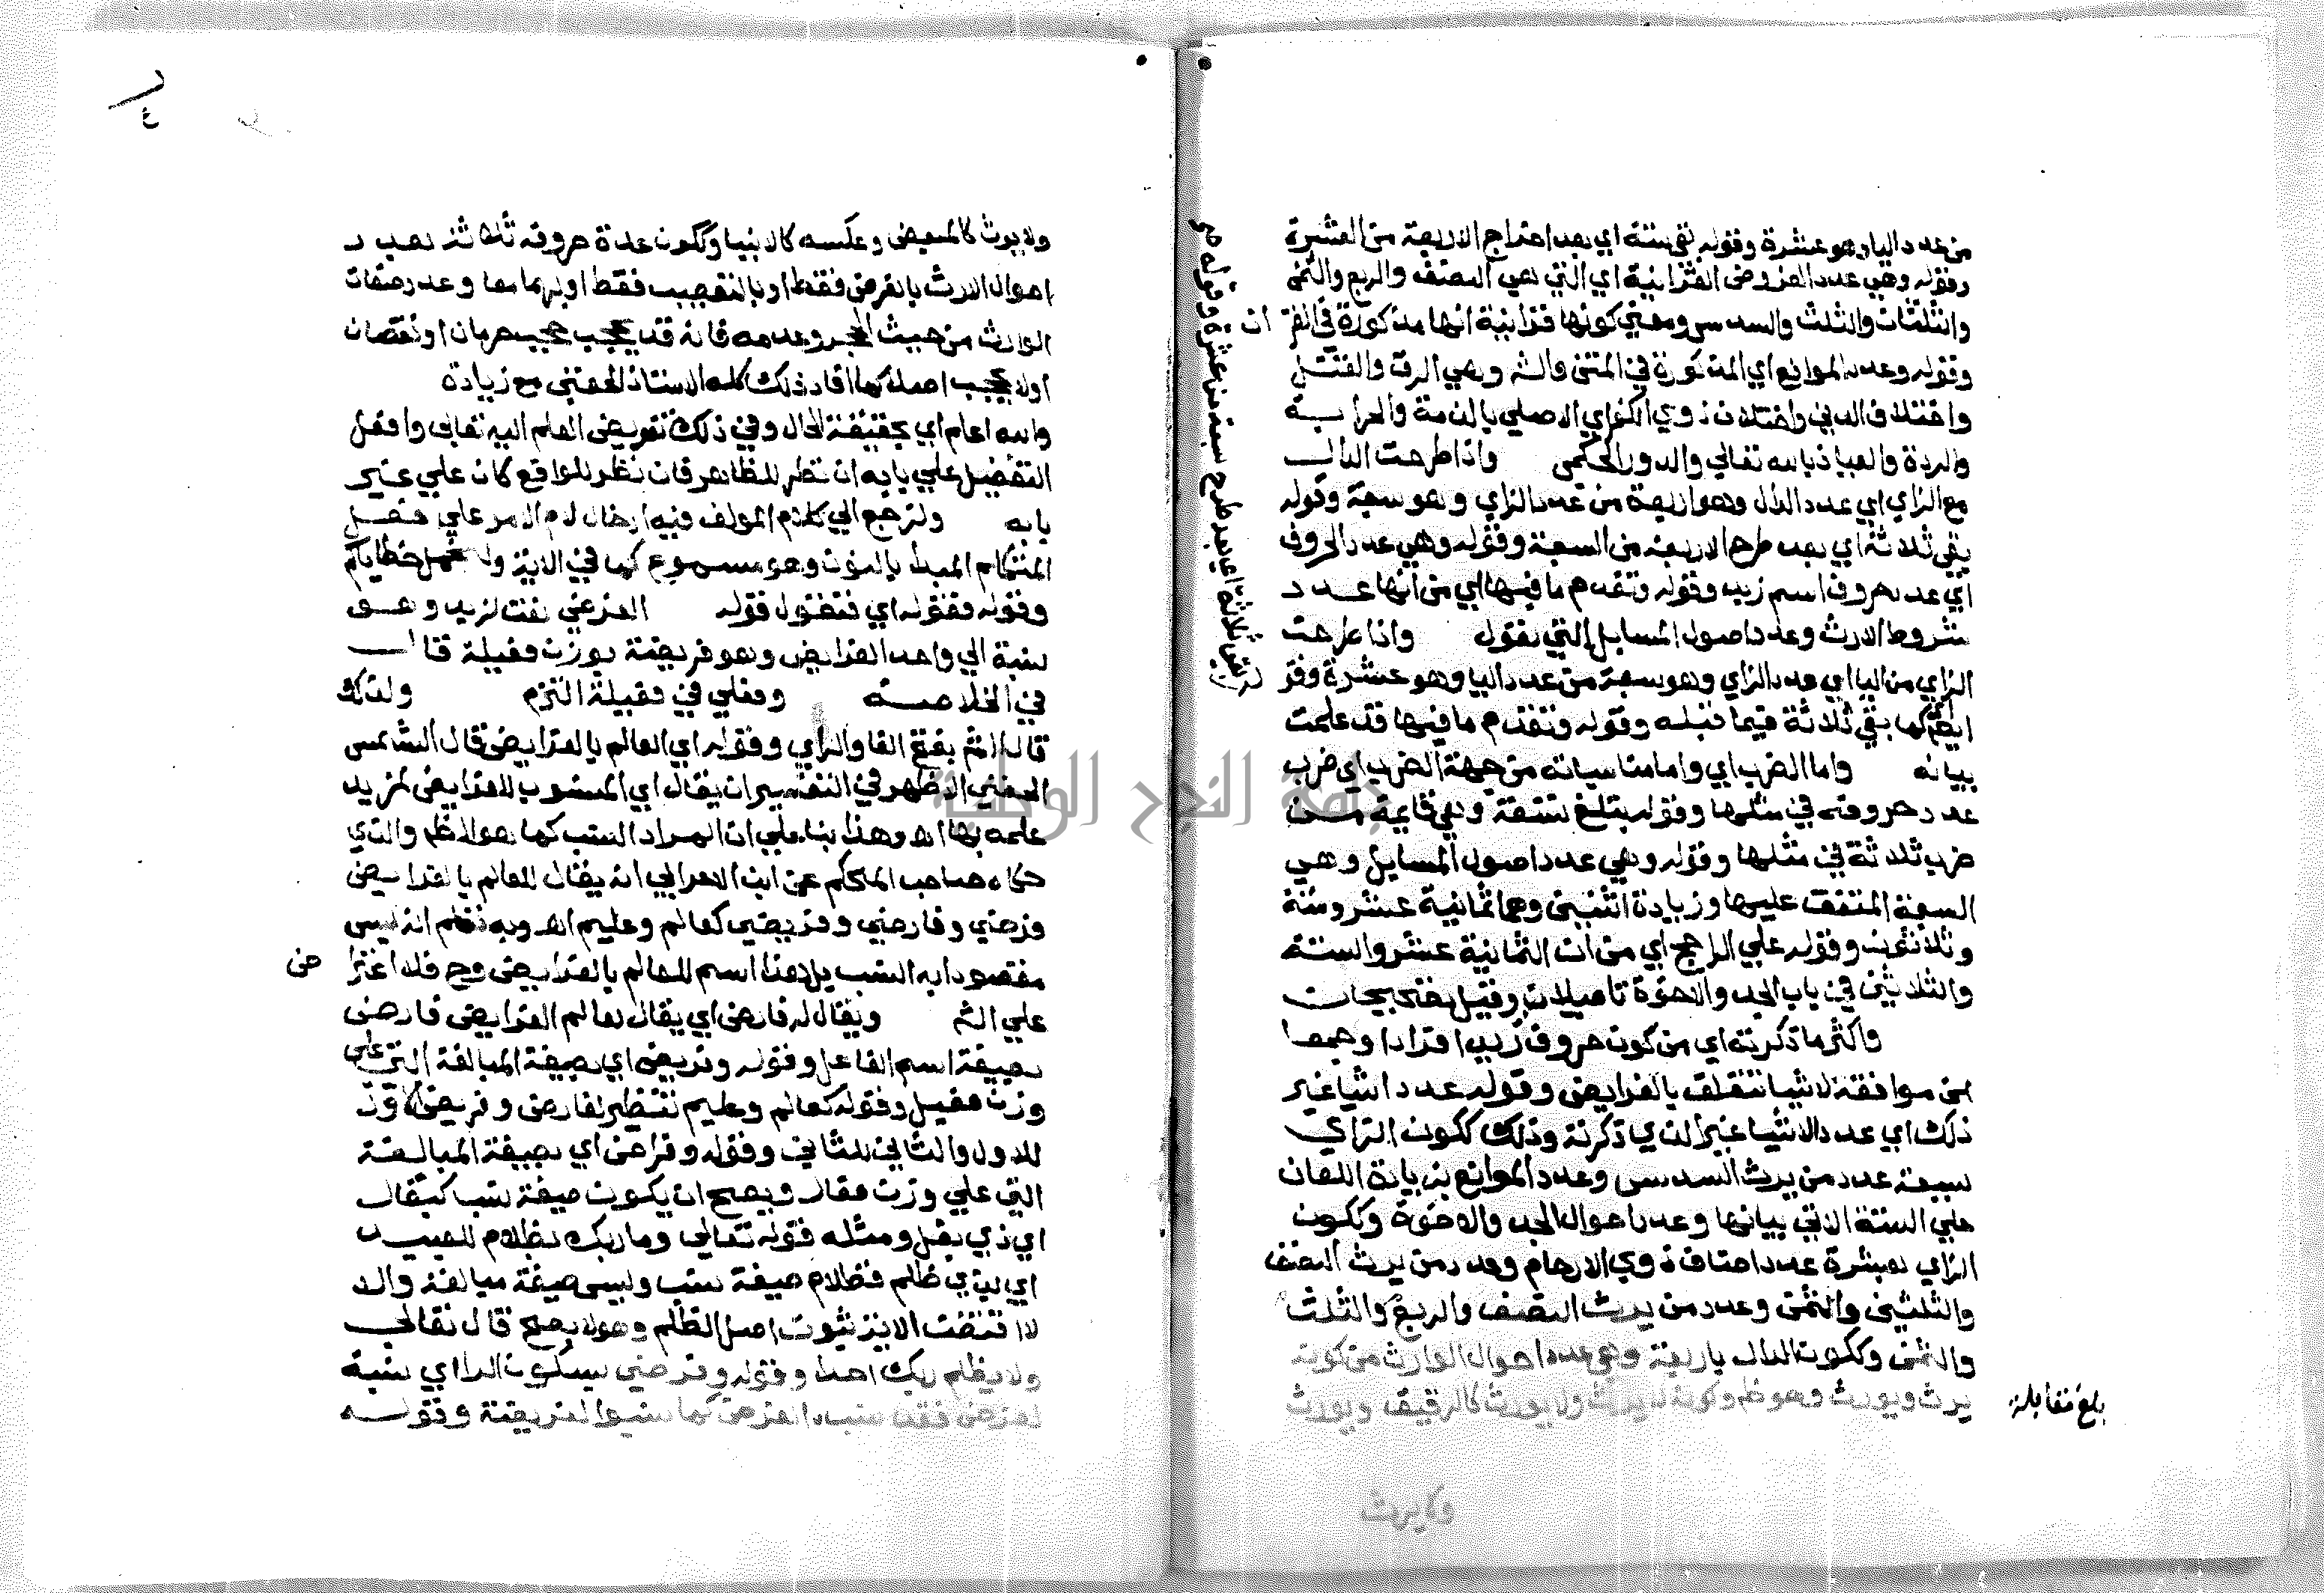 من عدد اليا وهو عشرة وقوله بقي ستة اي بعد اخراج الاربعة من العشرة
وقوله وهي عدد الفروض القرانية اي التي هي النصف والربع والثمن
والثلثان والثلث والسدس ومعني كونها قرانية انها مذكورة في القر ان
وقوله وعدد الموانع اي المذكورة في المتن والشـ وهي الرق والقتل
واختلاف الدين واختلاف ذوي الكفر اي الاصلي بالذمة والحرابة
والردة والعياذ بالله تعالي والدور الحكمي واذا طرحت الدال
مع الزاي اي عدد الدال وهو اربعة من عدد الزاي وهو سبعة وقوله
بقي ثلاثة اي بعد طرح الاربعة من السبعة وقوله وهي عدد الحروف
اي عدد حروف اسم زيد وقوله وتقدم ما فيها اي من انها عدد
شروط الارث وعدد اصول المسايل التي تعول واذا طرحت
الزاي من اليا اي عدد الزاي وهو سبعة من عدد اليا وهو عشرة وقو
ايضا كما بقي ثلاثة فيما قبله وقوله وتقدم ما فيها قد علمت
بيانه واما الضرب اي واما مناسباته من جهة الضرب اي ضرب
عدد حروفه في مثلها وقوله يبلغ تسعة وهي قايمة مـن
ضرب ثلاثة في مثلها وقوله وهي عدد اصول المسايل وهي
السبعة المتفق عليها وزيادة اثنين وهما ثمانية عشر وستة
وثلاثون وقوله علي الراجح اي من ان الثمانية عشر والستة
والثلاثين في باب الجد والاخوة تاصيلان وقيل تصحيحان
واكثر ما ذكرته اي من كون حروف زيد افرادا وجمعا
من موافقة لاشيا تتعلق بالفرايض وقوله عدد اشيا غير
ذلك اي عدد الاشيا غير الذي ذكرته وذلك ككون الزاي
سبعة عدد من يرث السدس وعدد الموانع بزيادة اللعان
علي الستة الاتي بيانها وعدد احوال الجد والاخوة وككون
الزاي بعشرة عدد اصناف ذوي الارحام وعدد من يرث النصف
والثلثين والثمن وعدد من يرث النصف والربع والثلث
والثمن وككون الدال باربعة وهي عدد احوال الوارث من كونه
يرث ويورث وهو ظ وكونه لا يرث ولا يورث كالرقيق ويورث
ولا يرث
بلغ مقابلة
ولا يورث كالمبعض وعكسه كالانبيا وككون عدة حروفه ثلاثة بعدد
احوال الارث بالفرض فقط او بالتعصيب فقط او بهما معا وعدد صفات
الوارث من حيث الحجر وعدمه فانه قد يحجب حجب حرمان او نقصان
اولا يحجب اصلا كما افاد ذلك كله الاستاذ الحفني مع زيادة
والله اعلم اي بحقيقة الحال وفي ذلك تفويض العلم اليه تعالي وافعل
التفضيل علي بابه ان نظر للظاهر فان نظر للواقع كان علي غير
بابه ولنرجع الي كلام المولف فيه ادخال لام الامر علي فعـل
المتكلم المبدا بالنون وهو مسموع كما في الاية ولنحمل خطاياكم
وقوله فقوله اي فنقول قوله الفرضي نعت لزيد وهـو
نسبة الي واحد الفرايض وهو فريضة بوزن فعيلة قال
في الخلاصـة وفعلي في فعيلة التزم ولذلك
قال الشـ بفتح الفا والراي وقوله اي العالم بالفرايض قال الشمس
الحفني الاظهر في التفسير ان يقال اي المنسوب للفرايض لمزيد
علمه بها اهـ وهذا بنا علي ان المراد النسب كما هو الاظهر والذي
حكاه صاحب المحكم عن ابن الاعرابي انه يقال للعالم بالفرايض
فرضي وفارضي وفريضي كعالم وعليم اهـ وبه تعلم انه ليس
مقصودا به النسب بل هذا اسم للعالم بالفرايض وح فلا اعترا ض
علي الشـ ويقال له فارض اي يقال لعالم الفرايض فارض
بصيغة اسم الفاعل وقوله وفريض اي بصيغة المبالغة التي علي
وزن فعيل وقوله كعالم وعليم تنظير لفارض وفريض الاول
للاول والثاني للثاني وقوله وفراض اي بصيغة المبالغة
التي علي وزن فعال ويصح ان يكون صيغة نسب كبقال
اي ذي بقل ومثله قوله تعالي وما ربك بظلام للعبيد
اي بذي ظلم فظلام صيغة نسب وليس صيغة مبالغة والا
لاقتضت الاية ثبوت اصل الظلم وهو لا يصح قال تعالي
ولا يظلم ربك احدا وقوله وفرضي بسكون الرا اي نسبة
لفرض فقد نسبوا الفرض كما نسبوا لفريضة وقولـه